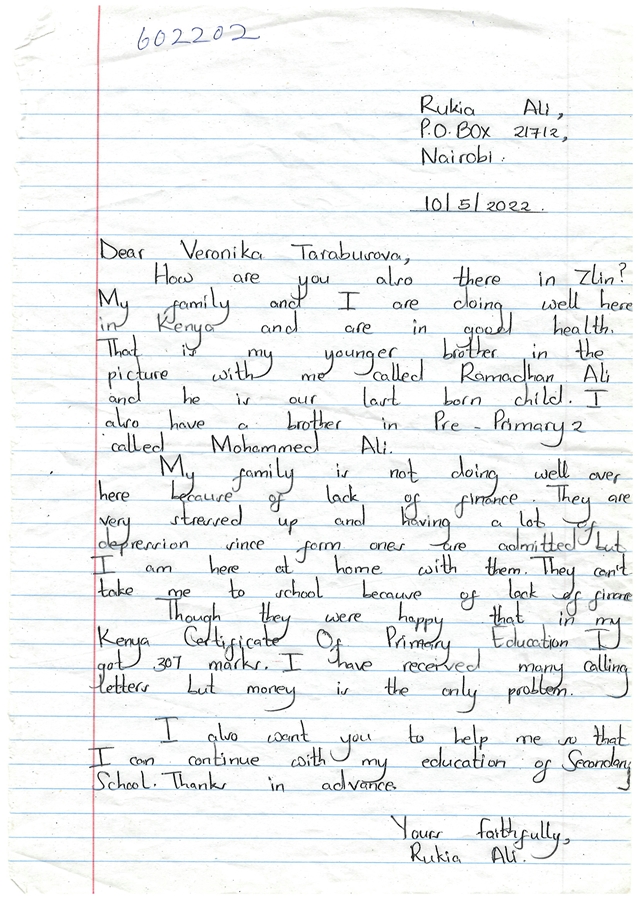 602202
Rukia Ali,
P.O. BOX 21712,
Nairobi.
10/5/2022.
Dear Veronika Taraburova,
How are you also there in Zlin?
My family and I are doing well here
in Kenya and are in good health.
That is my younger brother in the
picture with me called Ramadhan Ali
and he is our last born child. I
also have a brother in Pre-Primary 2
called Mohammed Ali.
My family is not doing well over
here because of lack of finance. They are
very stressed up and having a lot of
depression since form ones are admitted but
I am here at home with them. They can't
take me to school because of lack of finance
Though they were happy that in my
Kenya Certificate Of Primary Education I
got 307 marks. I have received many calling
letters but money is the only problem.
I also want you to help me so that
I can continue with my education of Secondary
School. Thanks in advance.
Yours faithfully,
Rukia Ali.